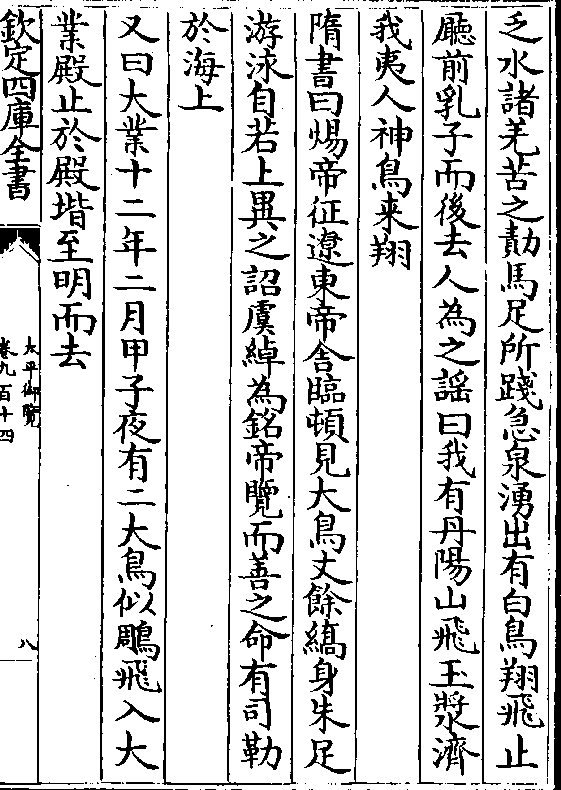 乏水諸羌苦之勣馬足所踐急泉湧出有白鳥翔飛止
廳前乳子而後去人為之謡曰我有丹陽山飛玉漿濟
我夷人神鳥来翔
隋書曰煬帝征遼東帝舎臨頓見大鳥丈餘縞身朱足
游泳自若上異之詔虞綽為銘帝覽而善之命有司勒
於海上
又曰大業十二年二月甲子夜有二大鳥似鵰飛入大
業殿止於殿堦至明而去
欽定四庫全書
太平御覽
卷九百十四
八